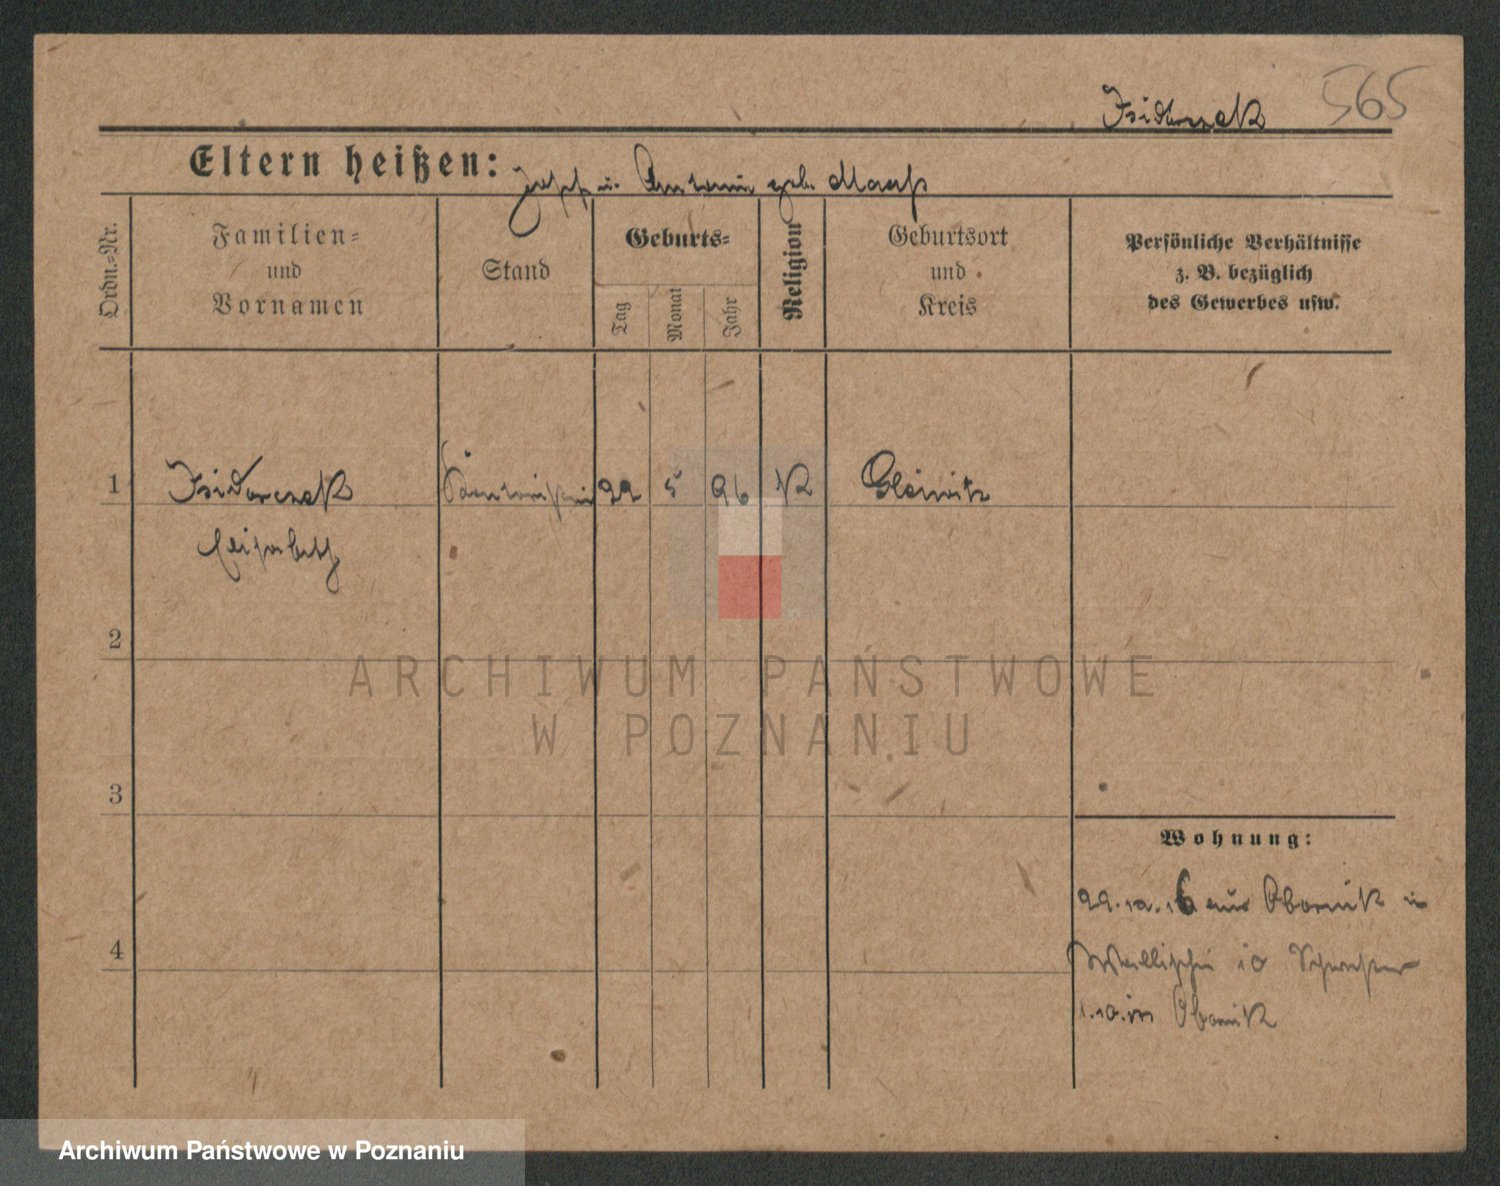 Isidorczek 565
Eltern heißen: Josef u. Antonie geb. Maaß
Ordn.-Nr.
Familien-
und
Vornamen
Stand
Geburts-
Tag
Monat
Jahr
Religion
Geburtsort
und
Kreis
Persönliche Verhältnisse
z. B. bezüglich
des Gewerbes usw.
1 Isidorczek 22 5 96 K Gleiwitz
Elisabeth
2
3
4
Wohnung:
22.12.16 aus Obornik in
Wallischei 10 Schwester
1.10. Obornik
ARCHIWUM PAŃSTWOWE
W POZNANIU
Archiwum Państwowe w Poznaniu